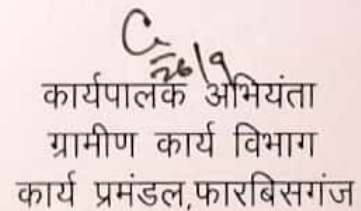 26/9
कार्यपालक अभियंता
ग्रामीण कार्य विभाग
कार्य प्रमंडल,फारबिसगंज